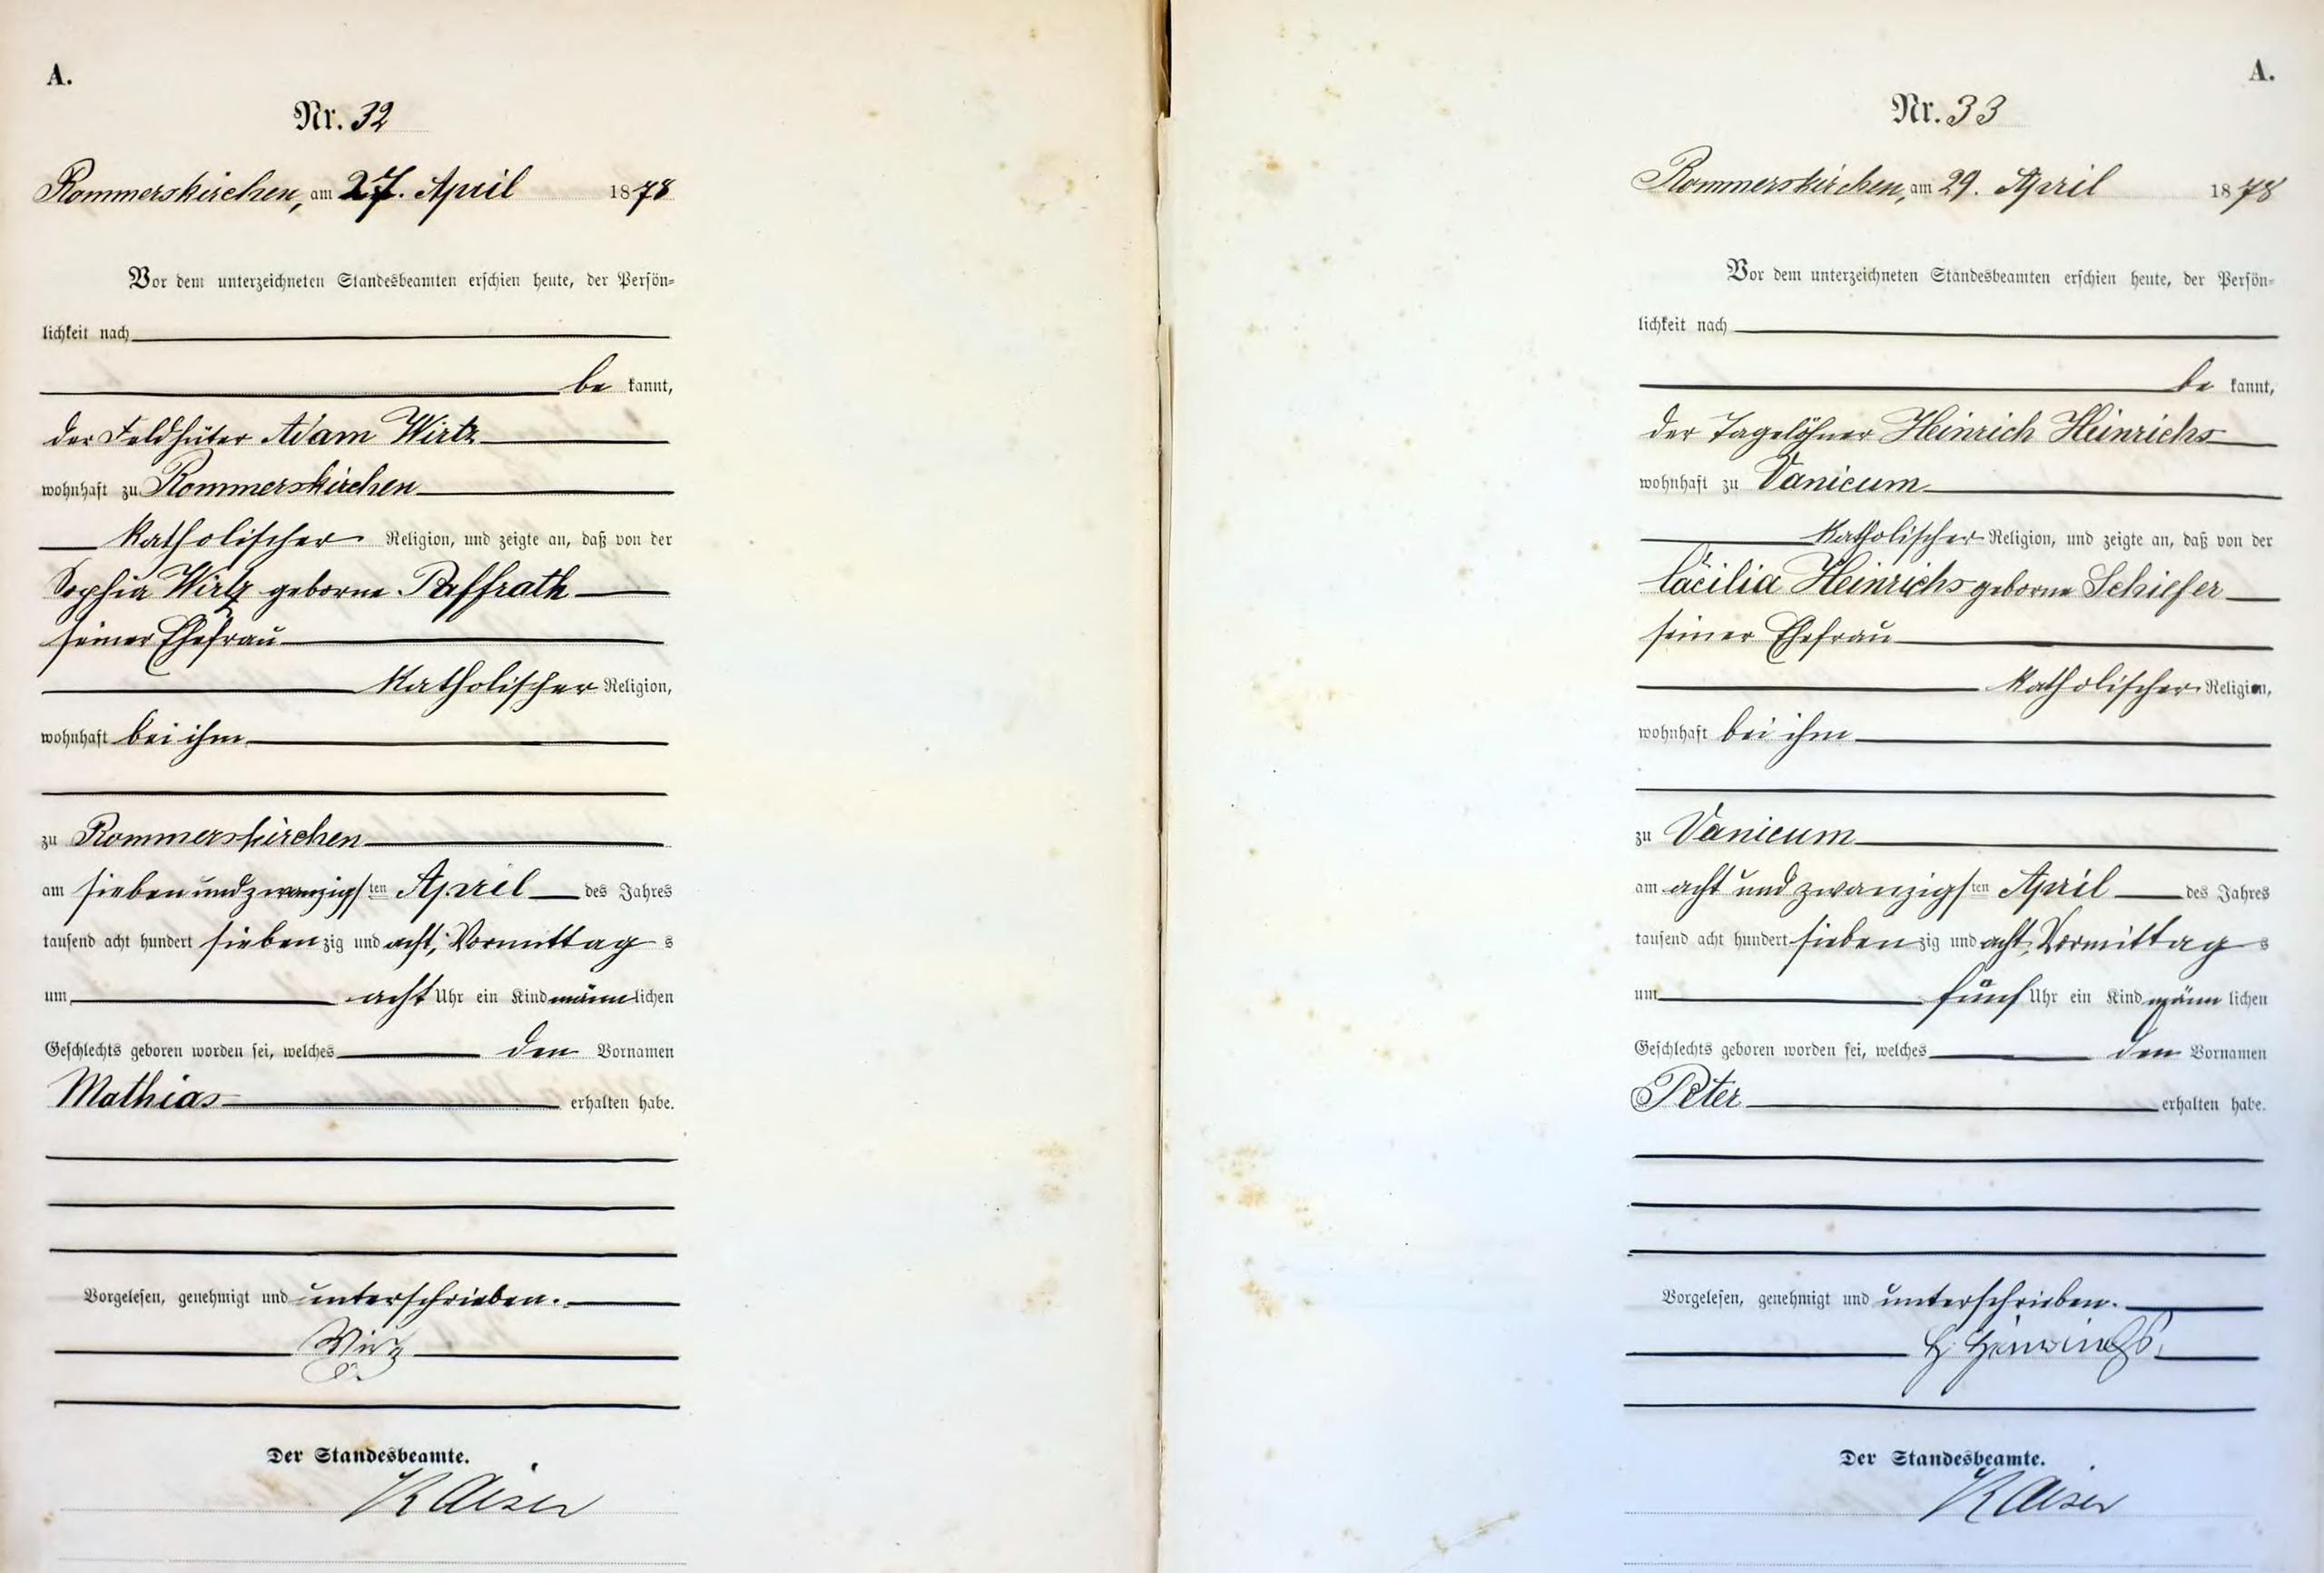 A.
Nr. 32
Rommerskirchen, am 27. April 1878
Vor dem unterzeichneten Standesbeamten erschien heute, der Persön-
lichkeit nach
be kannt,
der Feldhüter Adam Wirtz
wohnhaft zu Rommerskirchen
katholischer Religion, und zeigte an, daß von der
Sophia Wirtz geborne Paffrath
seiner Ehefrau
katholischer Religion,
wohnhaft bei ihm
zu Rommerskirchen
am sieben und zwanzigsten April des Jahres
tausend acht hundert siebenzig und acht, Vormittags
um acht Uhr ein Kind männlichen
Geschlechts geboren worden sei, welches den Vornamen
Mathias erhalten habe.
Vorgelesen, genehmigt und unterschrieben.
Wirz
Der Standesbeamte.
Kaiser
A.
Nr. 33
Rommerskirchen, am 29. April 1878
Vor dem unterzeichneten Standesbeamten erschien heute, der Persön-
lichkeit nach
be kannt,
der Tagelöhner Heinrich Heinrichs
wohnhaft zu Vanicum
katholischer Religion, und zeigte an, daß von der
Cäcilia Heinrichs geborne Schiefer
seiner Ehefrau
katholischer Religion,
wohnhaft bei ihm
zu Vanicum
am acht und zwanzigsten April des Jahres
tausend acht hundert siebenzig und acht, Vormittags
um fünf Uhr ein Kind männlichen
Geschlechts geboren worden sei, welches den Vornamen
Peter erhalten habe.
Vorgelesen, genehmigt und unterschrieben.
H. Heinrichs.
Der Standesbeamte.
Kaiser